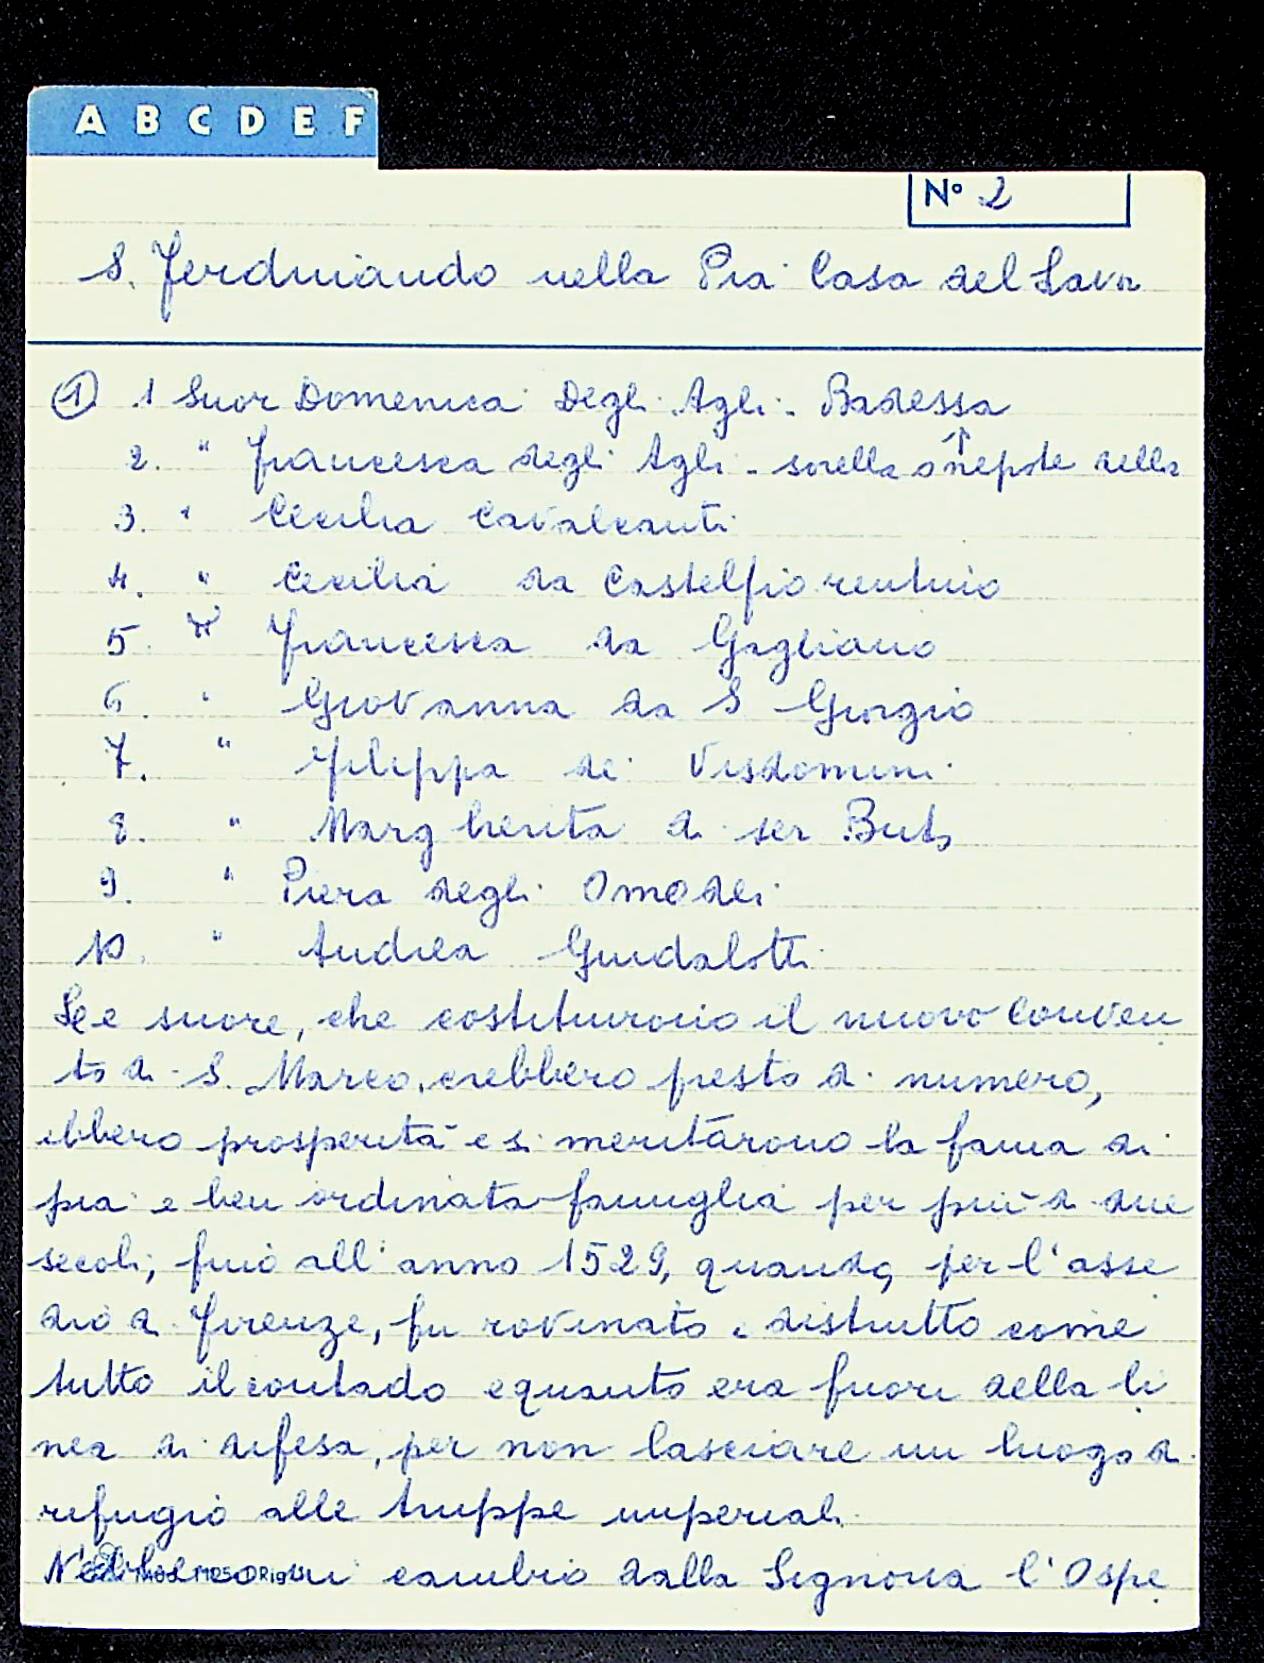 A B C D E F
Nº 2
S. Ferdinando nella Pia Casa del Lavor
① 1 Suor Domenica Degli Agli - Badessa
2. " Francesca degli Agli - sorella o nepote della ↑
3. " Cecilia Cavalcanti
4. " Cecilia da Castelfiorentino
5. " Francesca da Gagliano
6. " Giovanna da S Giorgio
7. " Filippa de' Visdomini
8. " Margherita di ser Buto
9. " Piera degli Omodei
10. " Andrea Guidalotti
Le suore, che costituirono il nuovo Conven
to di S. Marco, crebbero presto di numero,
ebbero prosperità e si meritarono la fama di
pia e ben ordinata famiglia per più di due
secoli, fino all'anno 1529, quando, per l'asse
dio di Firenze, fu rovinato e distrutto come
tutto il contado e quanto era fuori della li
nea di difesa, per non lasciare un luogo di
refugio alle truppe imperiali.
N'ebbero in cambio dalla Signoria l'Ospe